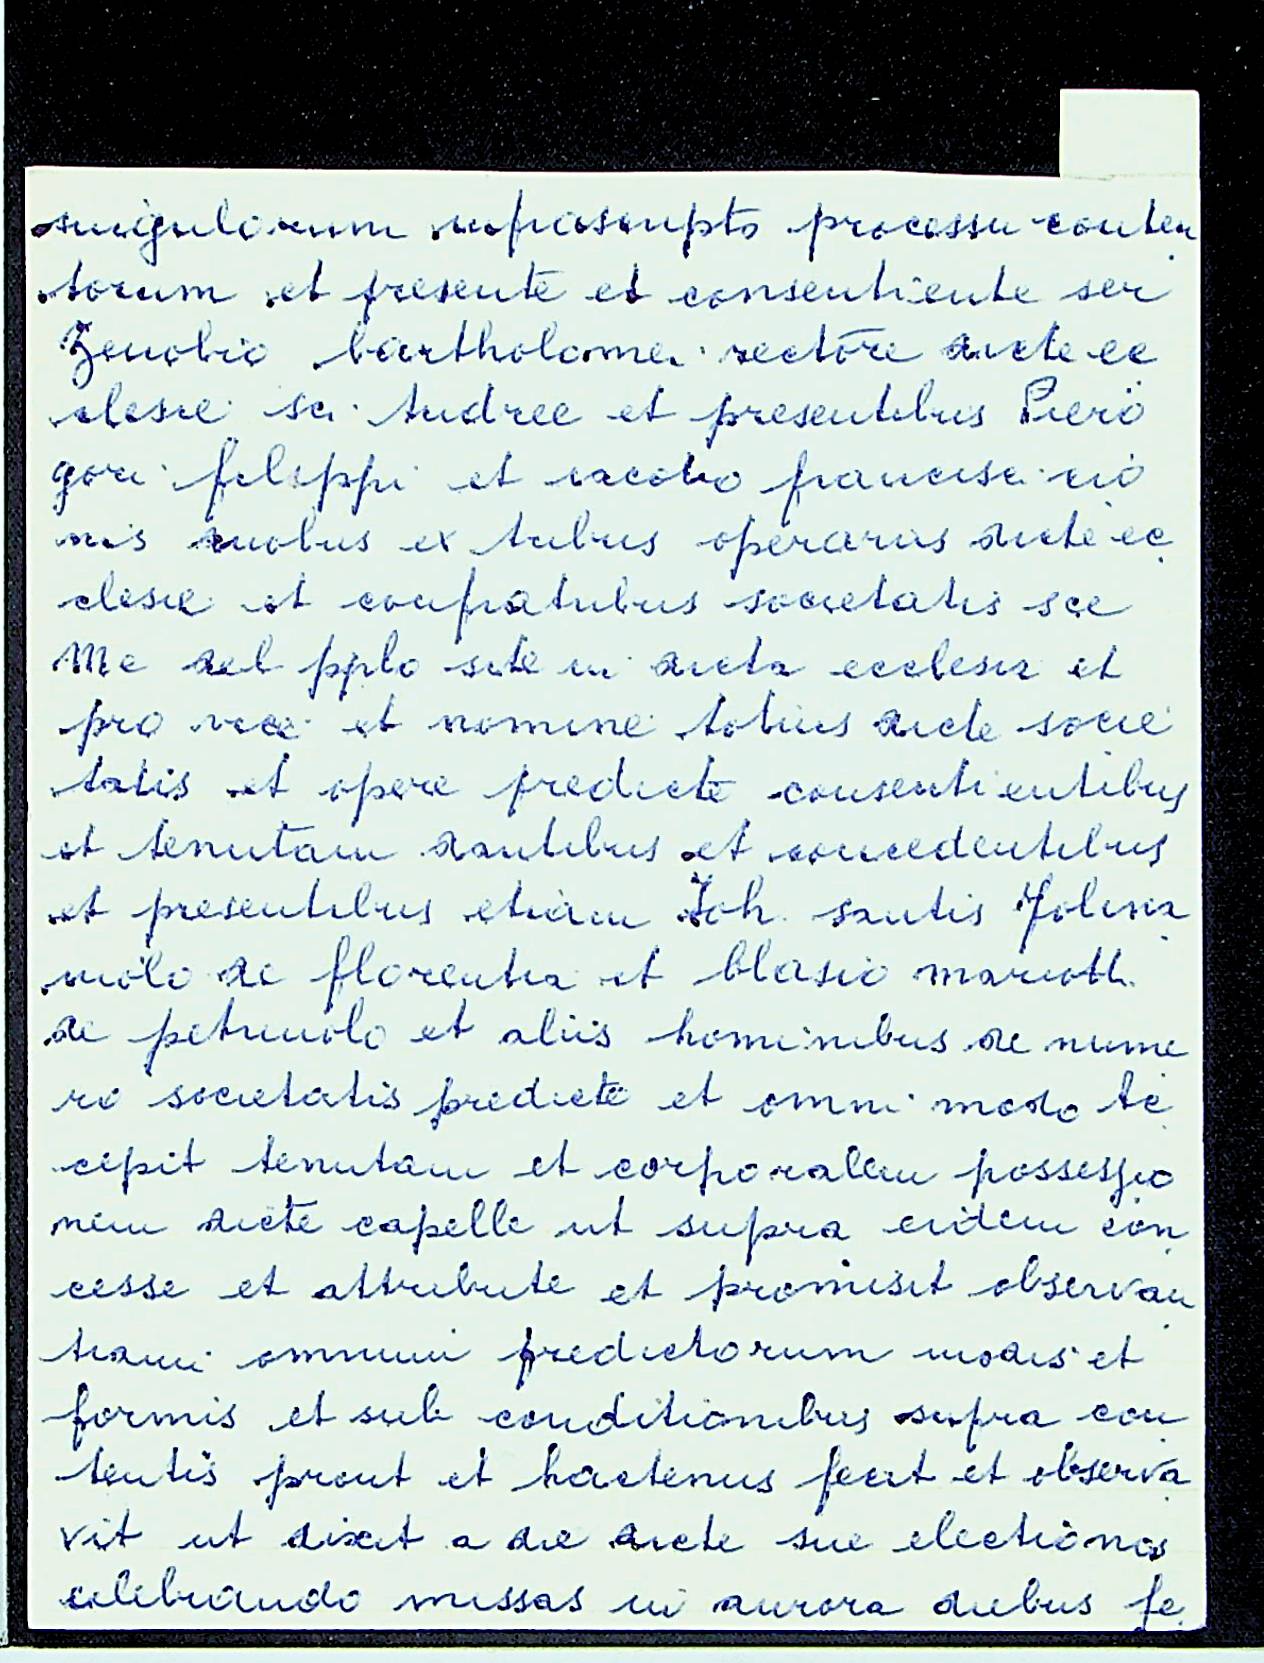 singulorum infrascripto processu conten
torum et presente et consentiente ser
Zenobio bartholomei rectore dicte ec
clesie sci Andree et presentibus Piero
gori filippi et iacobo francisci cio
nis duobus ex tribus operariis dicte ec
clesie et confratribus societatis sce
Me del pplo site in dicta ecclesia et
pro vice et nomine totius dicte socie
tatis et opere predicte consentientibus
et tenutam dantibus et concedentibus
et presentibus etiam Joh santis
de florentia et blasio mariotti
de petriuolo et aliis hominibus de nume
ro societatis predicte et omni modo
cepit tenutam et corporalem possessio
nem dicte capelle ut supra eidem con
cesse et attribute et promisit observan
tiam omnium predictorum modis et
formis et sub conditionibus supra con
tentis prout et hactenus fecit et observa
vit ut dixit a die dicte sue electionis
celebrando missas in aurora diebus fe